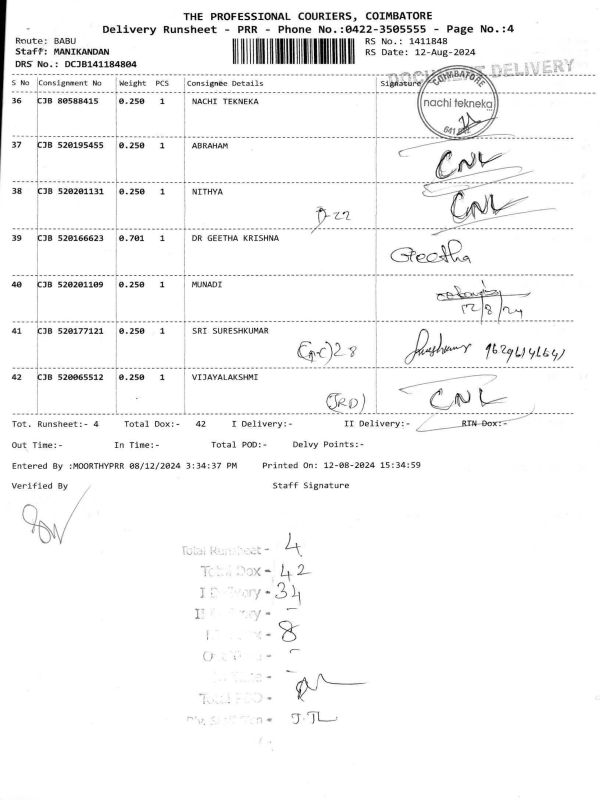 THE PROFESSIONAL COURIERS, COIMBATORE
Delivery Runsheet - PRR - Phone No.:0422-3505555 - Page No.:4
Route: BABU RS No.: 1411848
Staff: MANIKANDAN RS Date: 12-Aug-2024
DRS No.: DCJB141184804
DOCUMENT DELIVERY
S No Consignment No Weight PCS Consignee Details Signature
COIMBATORE
nachi tekneka
36 CJB 80588415 0.250 1 NACHI TEKNEKA
37 CJB 520195455 0.250 1 ABRAHAM CNL
38 CJB 520201131 0.250 1 NITHYA CNL
D-22
39 CJB 520166623 0.701 1 DR GEETHA KRISHNA Geetha
40 CJB 520201109 0.250 1 MUNADI
12/8/24
41 CJB 520177121 0.250 1 SRI SURESHKUMAR
28
42 CJB 520065512 0.250 1 VIJAYALAKSHMI CNL
Tot. Runsheet:- 4 Total Dox:- 42 I Delivery:- II Delivery:- RTN Dox:-
Out Time:- In Time:- Total POD:- Delvy Points:-
Entered By :MOORTHYPRR 08/12/2024 3:34:37 PM Printed On: 12-08-2024 15:34:59
Verified By Staff Signature
Total Runsheet - 4
Total Dox - 42
I Delivery - 34
II Delivery - -
8
Total POD -